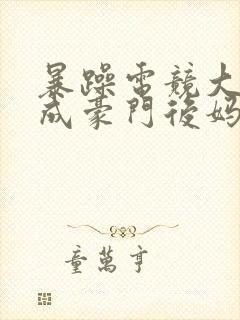 暴躁電競大
成豪門後媽
童萬亨